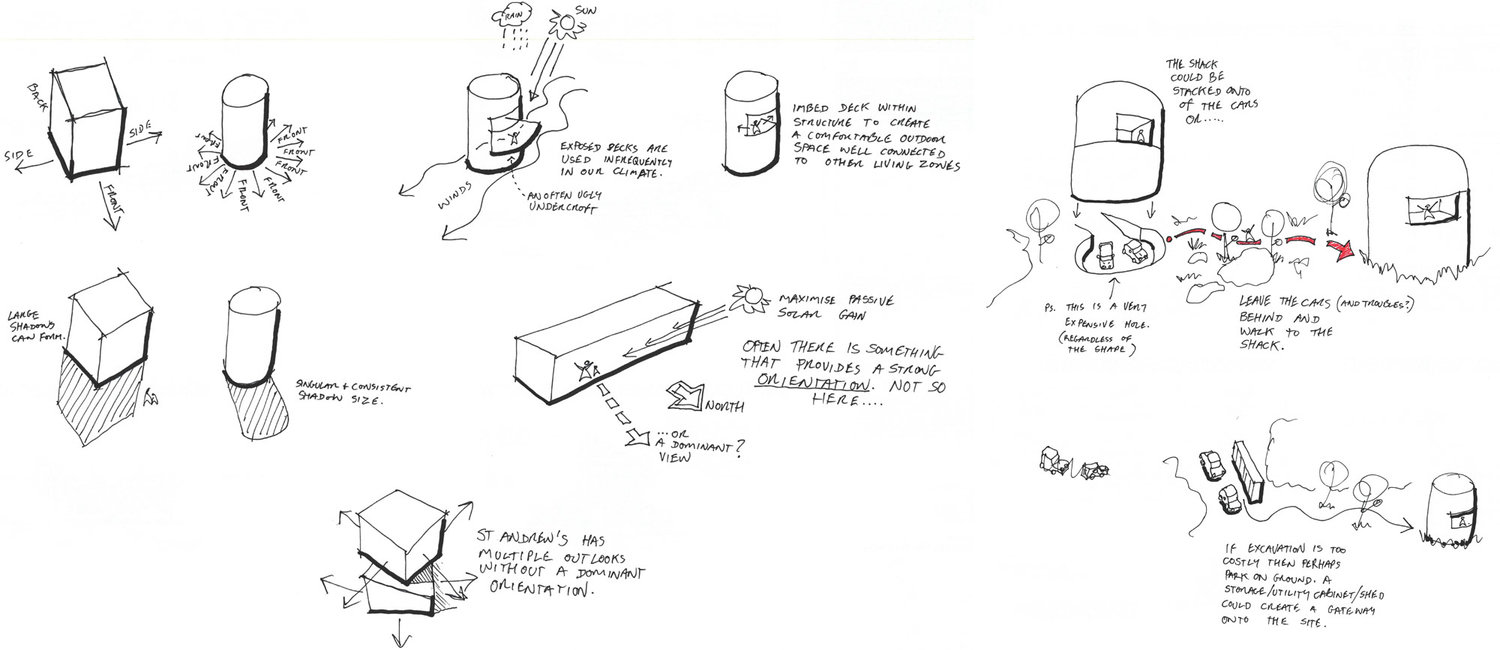 BACK
SIDE
SIDE
FRONT
FRONT
FRONT
FRONT
FRONT
FRONT
FRONT
FRONT
FRONT
FRONT
RAIN
SUN
WINDS
EXPOSED DECKS ARE
USED INFREQUENTLY
IN OUR CLIMATE.
AN OFTEN UGLY
UNDERCROFT
IMBED DECK WITHIN
STRUCTURE TO CREATE
A COMFORTABLE OUTDOOR
SPACE WELL CONNECTED
TO OTHER LIVING ZONES
LARGE
SHADOWS
CAN FORM.
SINGULAR + CONSISTENT
SHADOW SIZE.
MAXIMISE PASSIVE
SOLAR GAIN
OFTEN THERE IS SOMETHING
THAT PROVIDES A STRONG
ORIENTATION. NOT SO
HERE....
NORTH
...OR
A DOMINANT?
VIEW
ST ANDREW'S HAS
MULTIPLE OUTLOOKS
WITHOUT A DOMINANT
ORIENTATION.
THE SHACK
COULD BE
STACKED ONTO
OF THE CARS
OR.....
PS. THIS IS A VERY
EXPENSIVE HOLE.
(REGARDLESS OF
THE SHAPE)
LEAVE THE CARS (AND TROUBLES?)
BEHIND AND
WALK TO THE
SHACK.
IF EXCAVATION IS TOO
COSTLY THEN PERHAPS
PARK ON GROUND. A
STORAGE/UTILITY CABINET/SHED
COULD CREATE A GATEWAY
ONTO THE SITE.